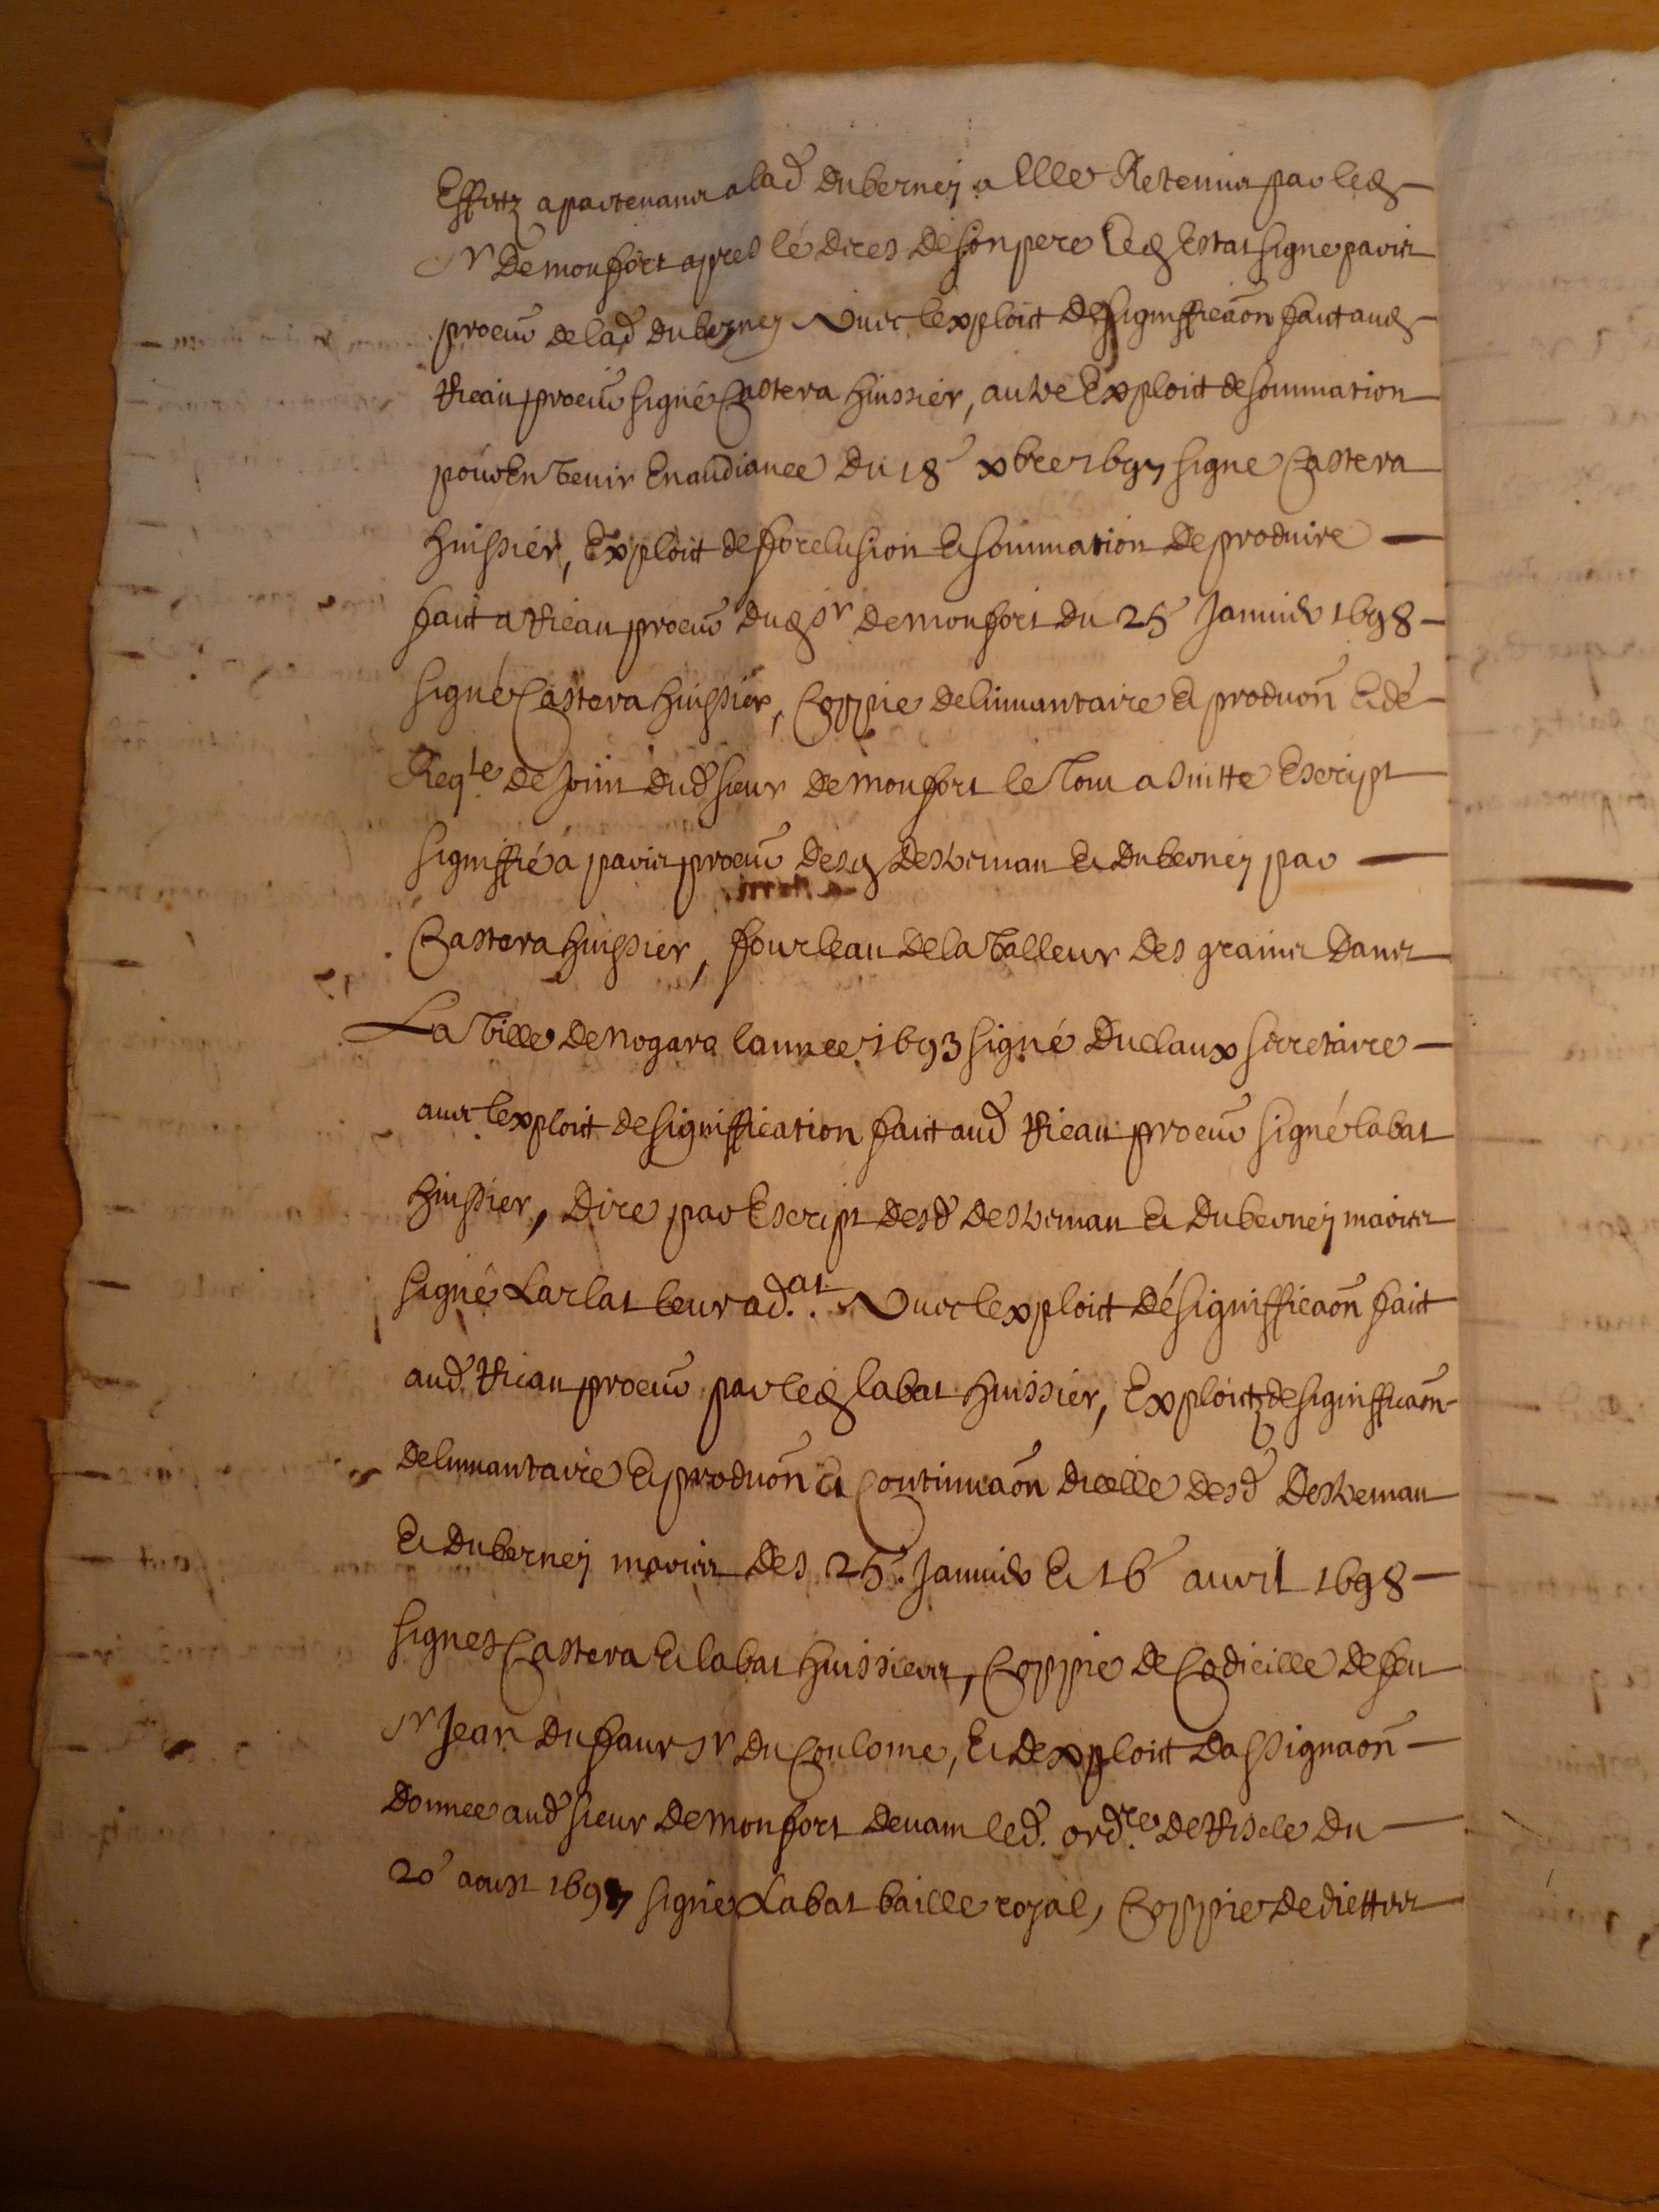 Effetz apartenant a lad duberney a elle Retenus par led
Sr De monfort apres le deces de son pere led Estat signe paris
procur de lad duberney Avec lexploit de signifficaon fait aud
Rieau procur signé Castera huissier, autre Exploit de sommation
pour En venir En audiance du 18 xbre 1697 signe Castera
huissier, Exploit de forclusion Et sommation de produire
fait a Rieau procur dud Sr de monfort du 25 Januier 1698
signé Castera huissier, Coppie delinuantaire Et produon Et de
Reqte de Joint dud sieur de monfort le tout a suitte Escript
signiffié a paris procur desd destreman Et duberney par
Castera huissier, fourleau de la valleur des grains dans
La Ville de nogaro lannee 1693 signé duclaux secretaire
auec lexploit de signiffication fait aud Rieau procur signé labat
huissier, dire par Escript desd destreman Et duberney maries
signé Larlat leur ad.at. Avec lexploit de signifficaon fait
aud Rieau procur par led labat huissier, Exploitz de signifficaon
delinuantaire Et produon Et Continuaon dicelle desd destreman
Et duberney maries des 25. Januier Et 16 auril 1698
signes Castera Et labat huissiers, Coppie de Codicille de feu
Sr Jean dufaur Sr du Coulome, Et dexploit dassignaon
donnee aud sieur de monfort deuant led. ordre de Riscle du
20 aoust 1697 signé Labat baille royal, Coppie de diettes